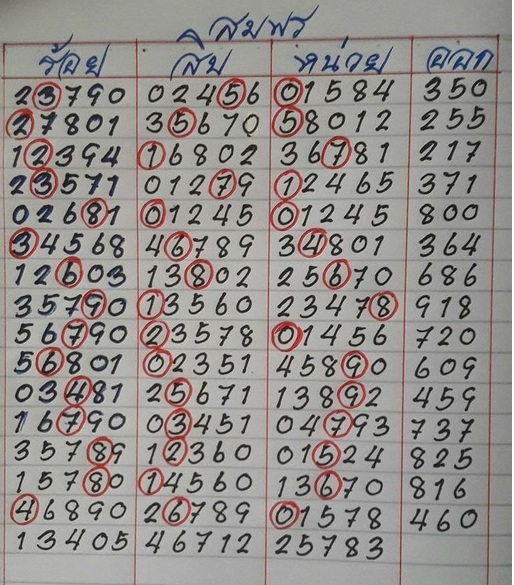 สมพร
ร้อย สิบ หน่วย ออก
23790 02456 01584 350
27801 35670 58012 255
12394 16802 36781 217
23571 01279 12465 371
02681 01245 01245 800
34568 46789 34801 364
12603 13802 25670 686
35790 13560 23478 918
56790 23578 01456 720
56801 02351 45890 609
03481 25671 13892 459
16790 03451 04793 737
35789 12360 01524 825
15780 14560 13670 816
46890 26789 01578 460
13405 46712 25783